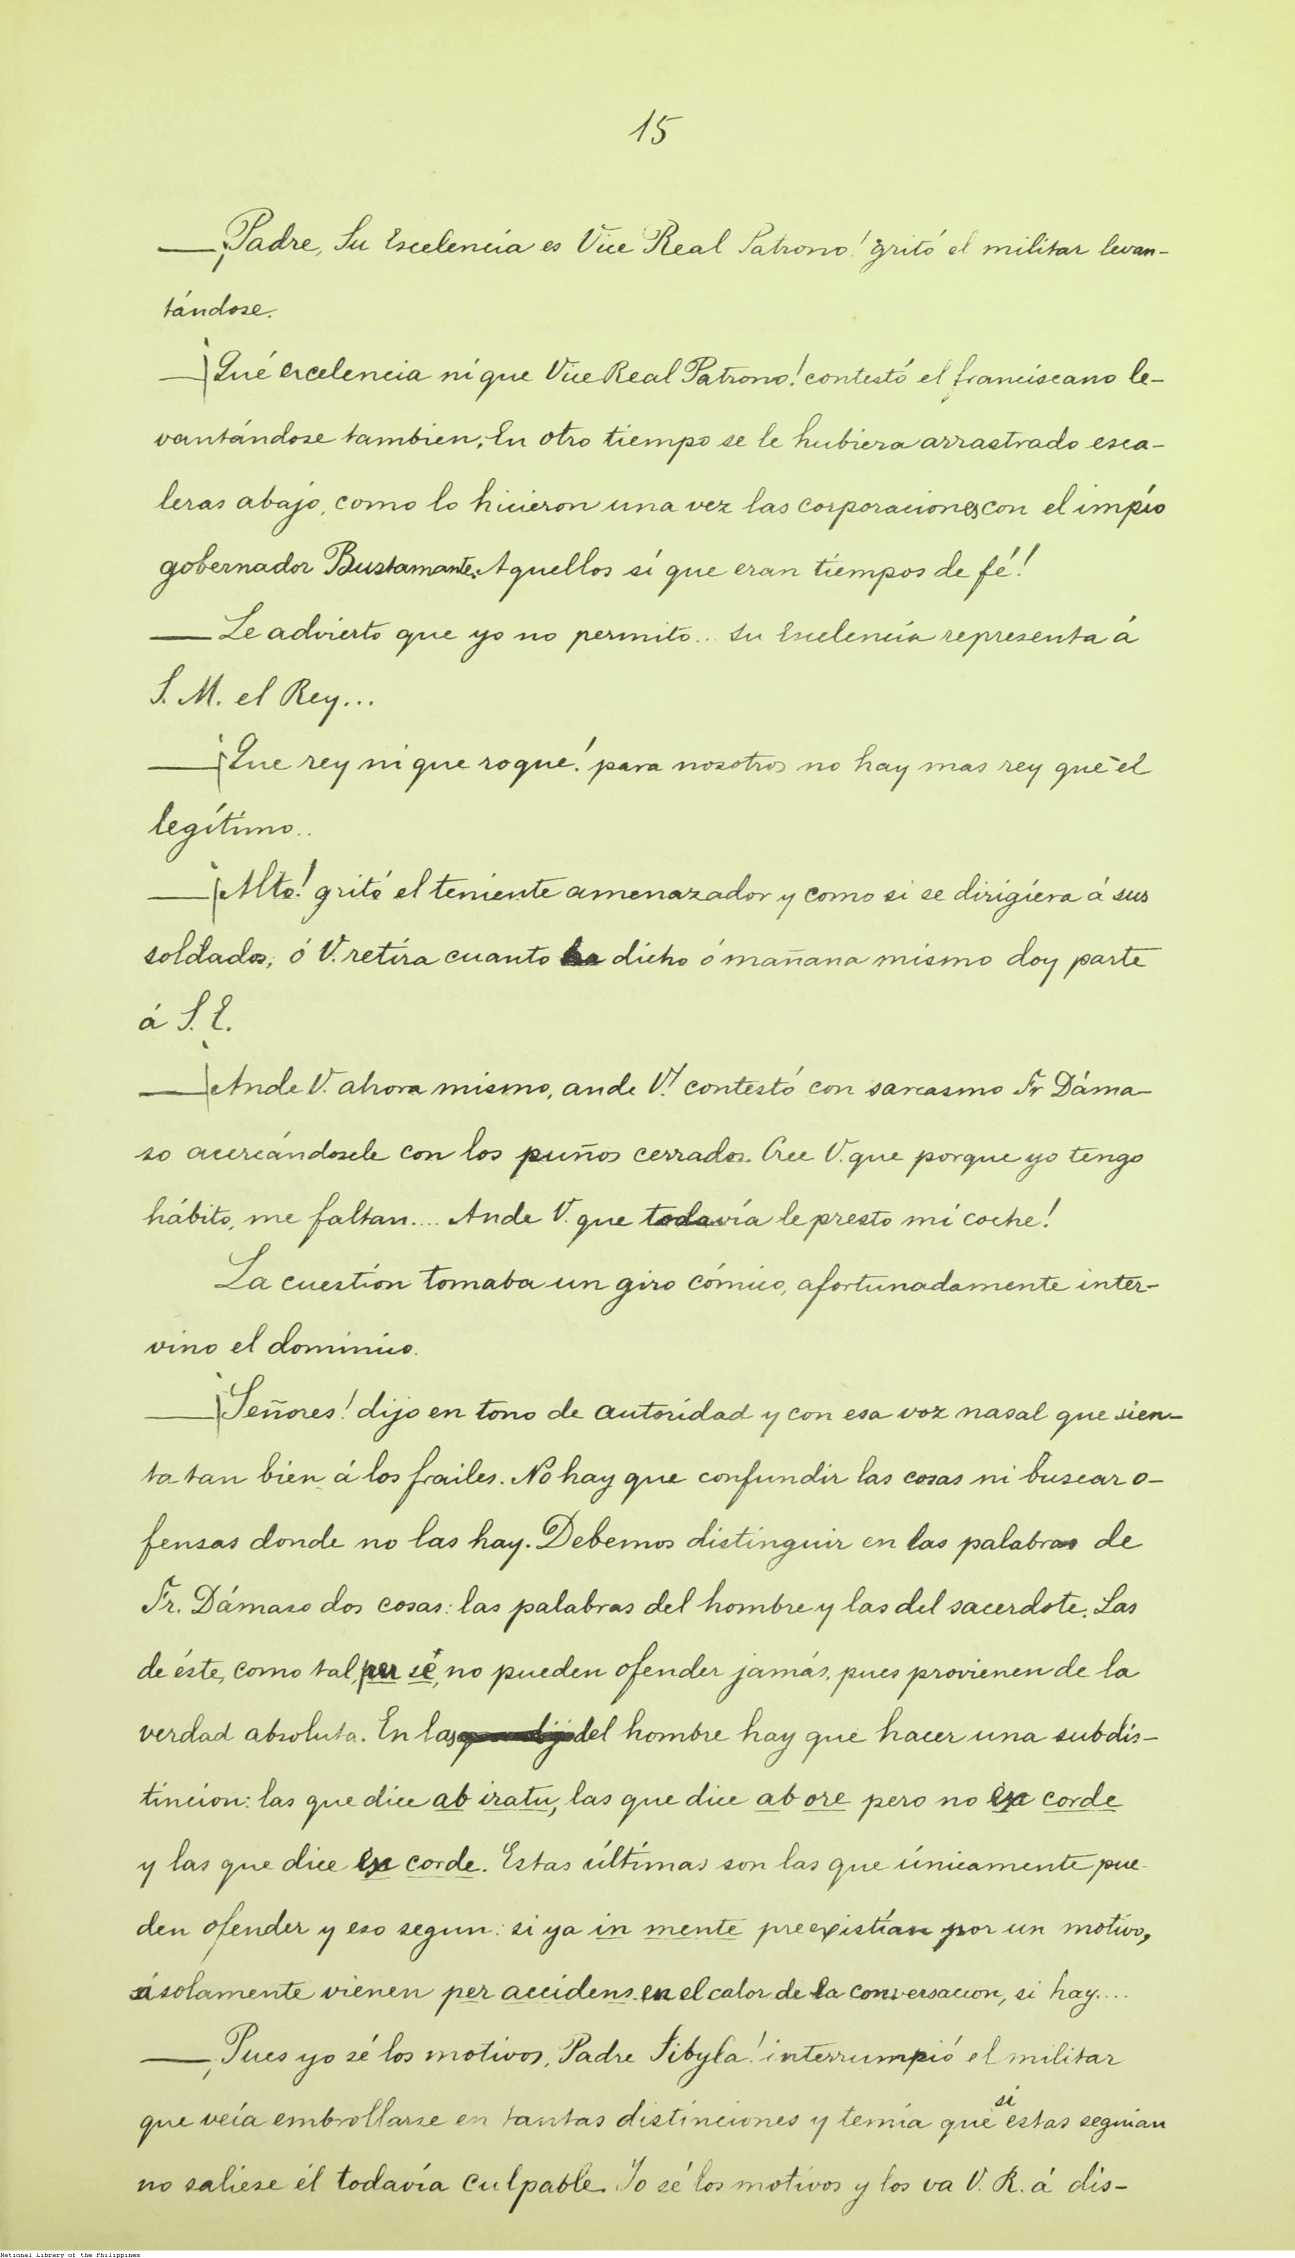 15
— ¡Padre, Su Escelencia es Vice Real Patrono! gritó el militar levan-
tándose.
— ¡Qué excelencia ni que Vice Real Patrono! contestó el franciscano le-
vantándose tambien. En otro tiempo se le hubiera arrastrado esca-
leras abajo, como lo hicieron una vez las corporaciones con el impío
gobernador Bustamante. Aquellos sí que eran tiempos de fé!
— Le advierto que yo no permito.. Su Escelencia representa á
S. M. el Rey...
— ¡Que rey ni que roque! para nosotros no hay mas rey que el
legítimo..
— ¡Alto! gritó el teniente amenazador y como si se dirigiera á sus
soldados; ó V. retira cuanto ha dicho ó mañana mismo doy parte
á S. E.
— ¡Ande V. ahora mismo, ande V.! contestó con sarcasmo Fr Dáma-
so acercándosele con los puños cerrados. Cree V. que porque yo tengo
hábito, me faltan.... Ande V. que todavía le presto mi coche!
La cuestión tomaba un giro cómico, afortunadamente inter-
vino el dominico.
— ¡Señores! dijo en tono de autoridad y con esa voz nasal que sien-
ta tan bien á los frailes. No hay que confundir las cosas ni buscar o-
fensas donde no las hay. Debemos distinguir en las palabras de
Fr. Dámaso dos cosas: las palabras del hombre y las del sacerdote. Las
de éste, como tal, per sé, no pueden ofender jamás, pues provienen de la
verdad absoluta. En las del hombre hay que hacer una subdis-
tincion: las que dice ab iratu, las que dice ab ore pero no ex corde
y las que dice ex corde. Estas últimas son las que únicamente pue-
den ofender y eso segun: si ya in mente preexistían por un motivo,
ó solamente vienen per accidens en el calor de la conversacion, si hay....
— ¡Pues yo sé los motivos, Padre Sibyla! interrumpió el militar
que veía embrollarse en tantas distinciones y temía que si estas seguian
no saliese él todavía culpable. Yo sé los motivos y los va V. R. á dis-
National Library of the Philippines